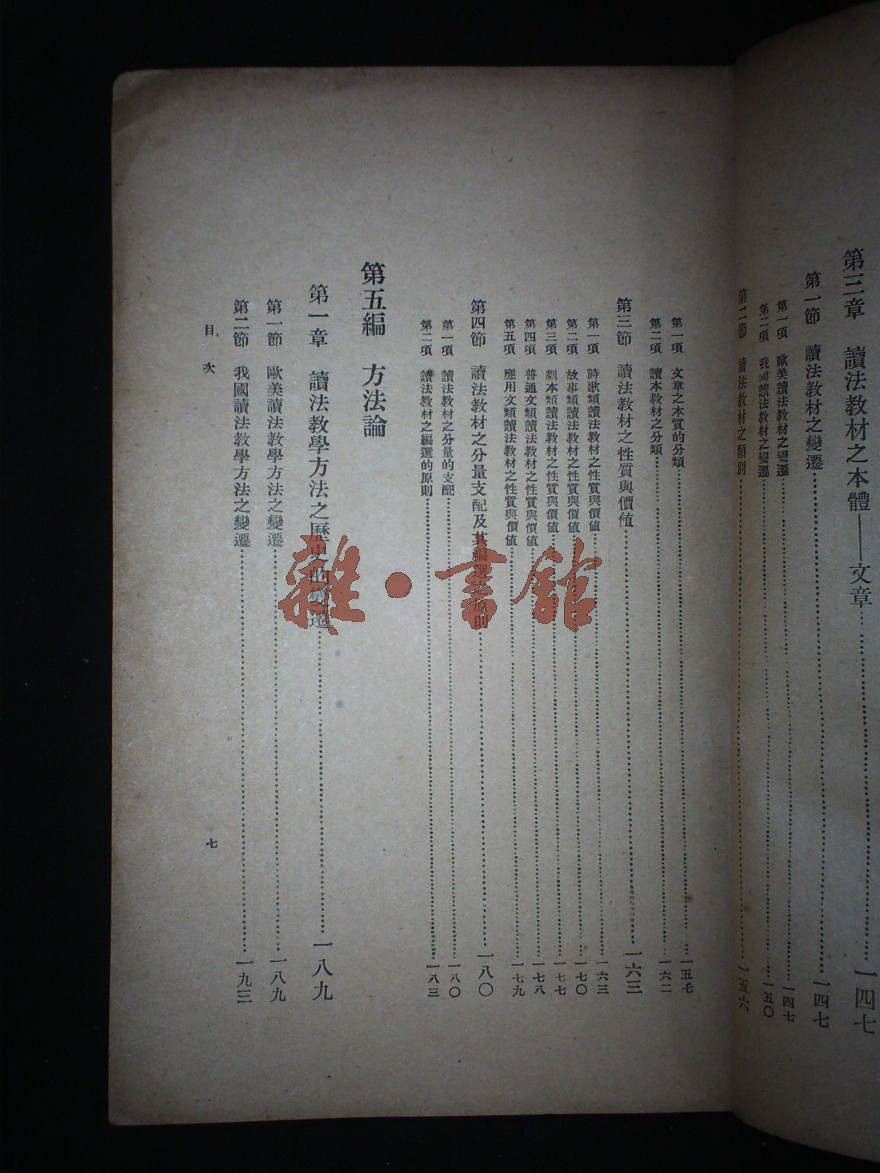 第三章　讀法教材之本體——文章……一四七
第一節　讀法教材之變遷……一四七
第一項　歐美讀法教材之變遷……一四七
第二項　我國讀法教材之變遷……一五〇
第二節　讀法教材之類別……一五六
第一項　文章之本質的分類……一五七
第二項　讀本教材之分類……一六二
第三節　讀法教材之性質與價值……一六三
第一項　詩歌類讀法教材之性質與價值……一六三
第二項　故事類讀法教材之性質與價值……一七〇
第三項　劇本類讀法教材之性質與價值……一七七
第四項　普通文類讀法教材之性質與價值……一七八
第五項　應用文類讀法教材之性質與價值……一七九
第四節　讀法教材之分量支配及其編選之原則……一八〇
第一項　讀法教材之分量的支配……一八〇
第二項　讀法教材之編選的原則……一八三
第五編　方法論
第一章　讀法教學方法之歷史的變遷……一八九
第一節　歐美讀法教學方法之變遷……一八九
第二節　我國讀法教學方法之變遷……一九三
目次　七
雜·書館